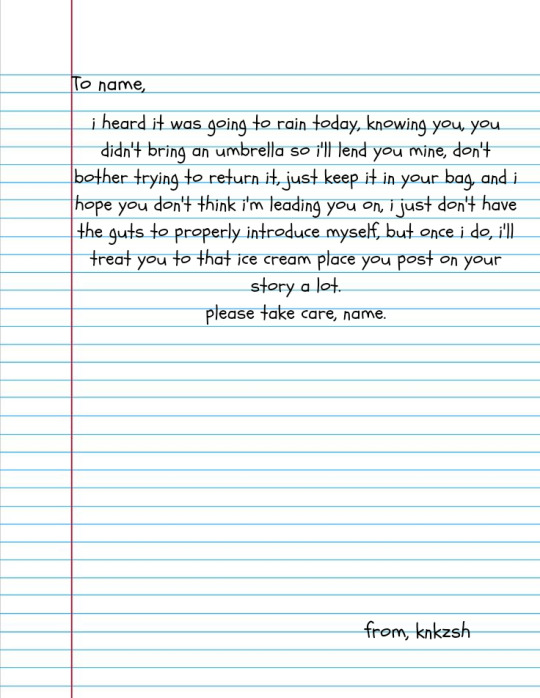 To name,
i heard it was going to rain today, knowing you, you
didn't bring an umbrella so i'll lend you mine, don't
bother trying to return it, just keep it in your bag, and i
hope you don't think i'm leading you on, i just don't have
the guts to properly introduce myself, but once i do, i'll
treat you to that ice cream place you post on your
story a lot.
please take care, name.
from, knkzsh